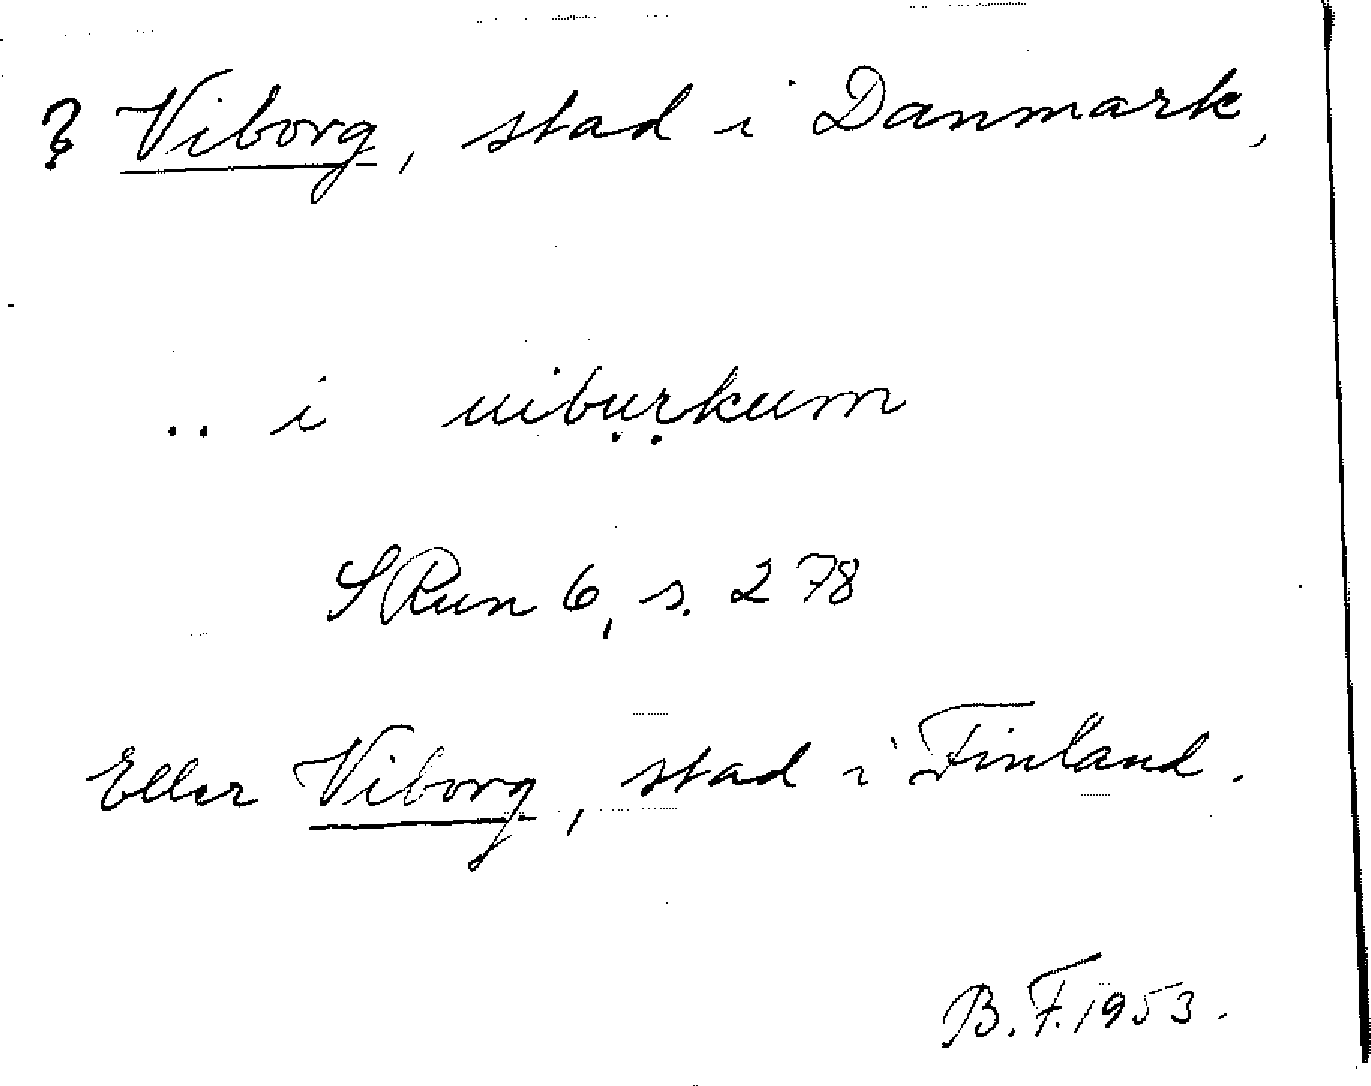 ? Viborg, stad i Danmark,
.. i uibụṛkum
SRun 6, s. 278
Eller Viborg, stad i Finland.
B.F. 1953.